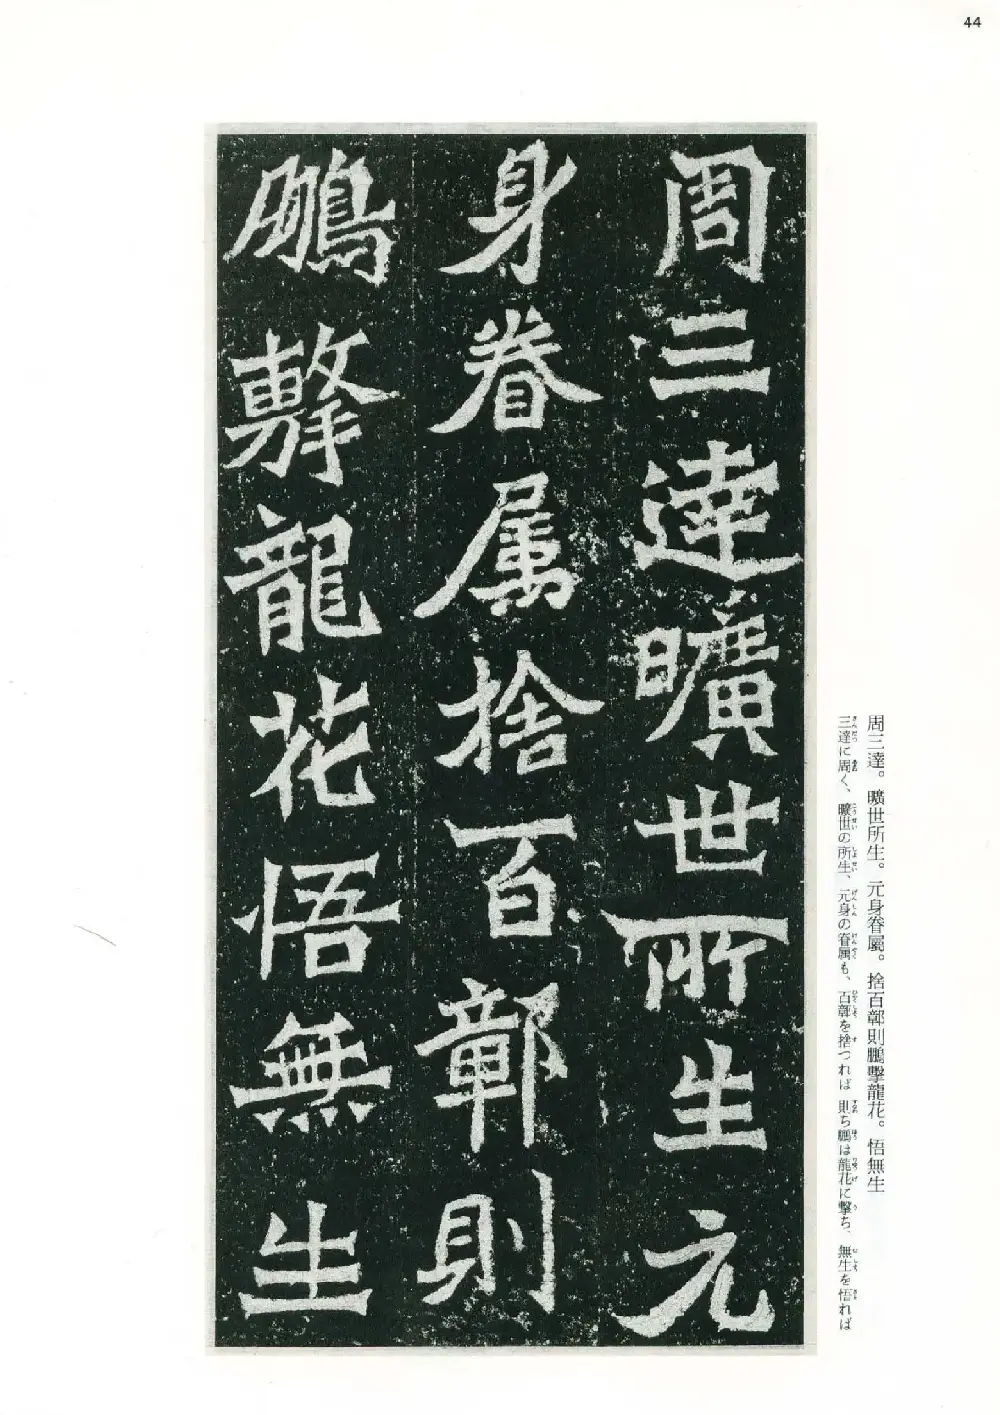 44
周三達曠世所生元
身眷属捨百鄣則
鵬擊龍花悟無生
周三達。曠世所生。元身眷屬。捨百鄣則鵬擊龍花。悟無生
三達に周く、曠世の所生、元身の眷属も、百鄣を捨つれば 則ち鵬は龍花に撃ち、無生を悟れば